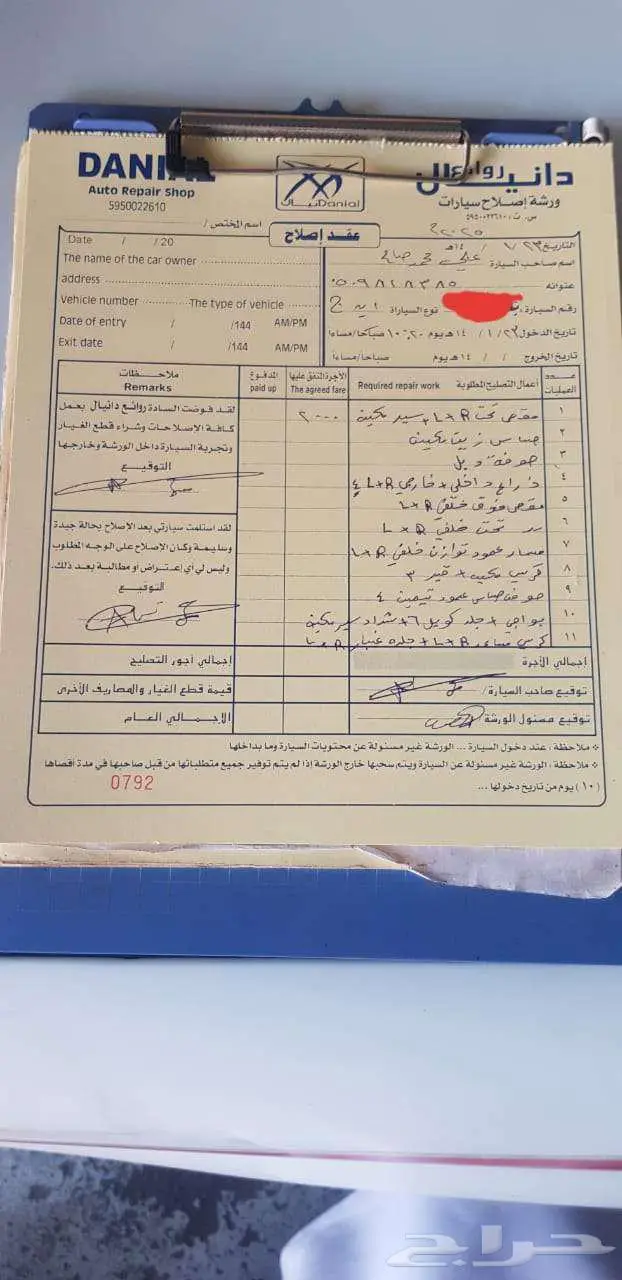 DANIAL
Auto Repair Shop
5950022610
Danial
دانيال
روائع دانيال
ورشة إصلاح سيارات
س. ت: ٥٩٥٠٠٢٢٦١٠
اسم المختص /
عقد إصلاح
Date / / 20
التاريخ ٢٣ / ٧ / ١٤هـ ٢٠٢٥
The name of the car owner
اسم صاحب السيارة علي محمد صالح
address
عنوانه ٠٥٠٩٨١٨٣٨٥
Vehicle number The type of vehicle
رقم السيارة: نوع السيارة
Date of entry / /144 AM/PM
تاريخ الدخول ٢٣ / ١ / ١٤هـ يوم ١٠:٢٠ صباحا/مساءا
Exit date / /144 AM/PM
تاريخ الخروج / / ١٤هـ يوم صباحا/مساءا
عدد العمليات
أعمال التصليح المطلوبة Required repair work
الأجرة المتفق عليها The agreed fare
المدفوع paid up
ملاحـــظات
Remarks
١ مقص تحت L+R + سير مكينه ٢٠٠٠
٢ حساس زيت مكينه
٣ صوفة دبل
٤ ذراع داخلي + خارجي L+R ٤
٥ مقص فوق خلفي L+R
٦ تحت خلفي L+R
٧ مسمار عمود توازن خلفي L+R
٨ كرسي مكينه + قير ٣
٩ حساس عمود ٤
١٠ بواجي + جلد كويل ٦ + شداد سير مكينه
١١ كرسي مساعد L+R + جلده غبار L+R
لقد فوضت السادة روائع دانيال بعمل
كافة الإصلاحات وشراء قطع الغيار
وتجربة السيارة داخل الورشة وخارجها
التوقيـــع
لقد استلمت سيارتي بعد الإصلاح بحالة جيدة
وسليمة وكان الإصلاح على الوجه المطلوب
وليس لي أي إعتراض أو مطالبة بعد ذلك.
التوقيـــع
إجمالي الأجرة
إجمالي أجور التصليح
توقيع صاحب السيارة/
قيمة قطع الغيار والمصاريف الأخرى
توقيع مسئول الورشة
الإجمـــالي العـــام
ملاحظة: عند دخول السيارة ... الورشة غير مسئولة عن محتويات السيارة وما بداخلها
ملاحظة: الورشة غير مسئولة عن السيارة ويتم سحبها خارج الورشة إذا لم يتم توفير جميع متطلباتها من قبل صاحبها في مدة أقصاها
(١٠) يوم من تاريخ دخولها ...
0792
حراج